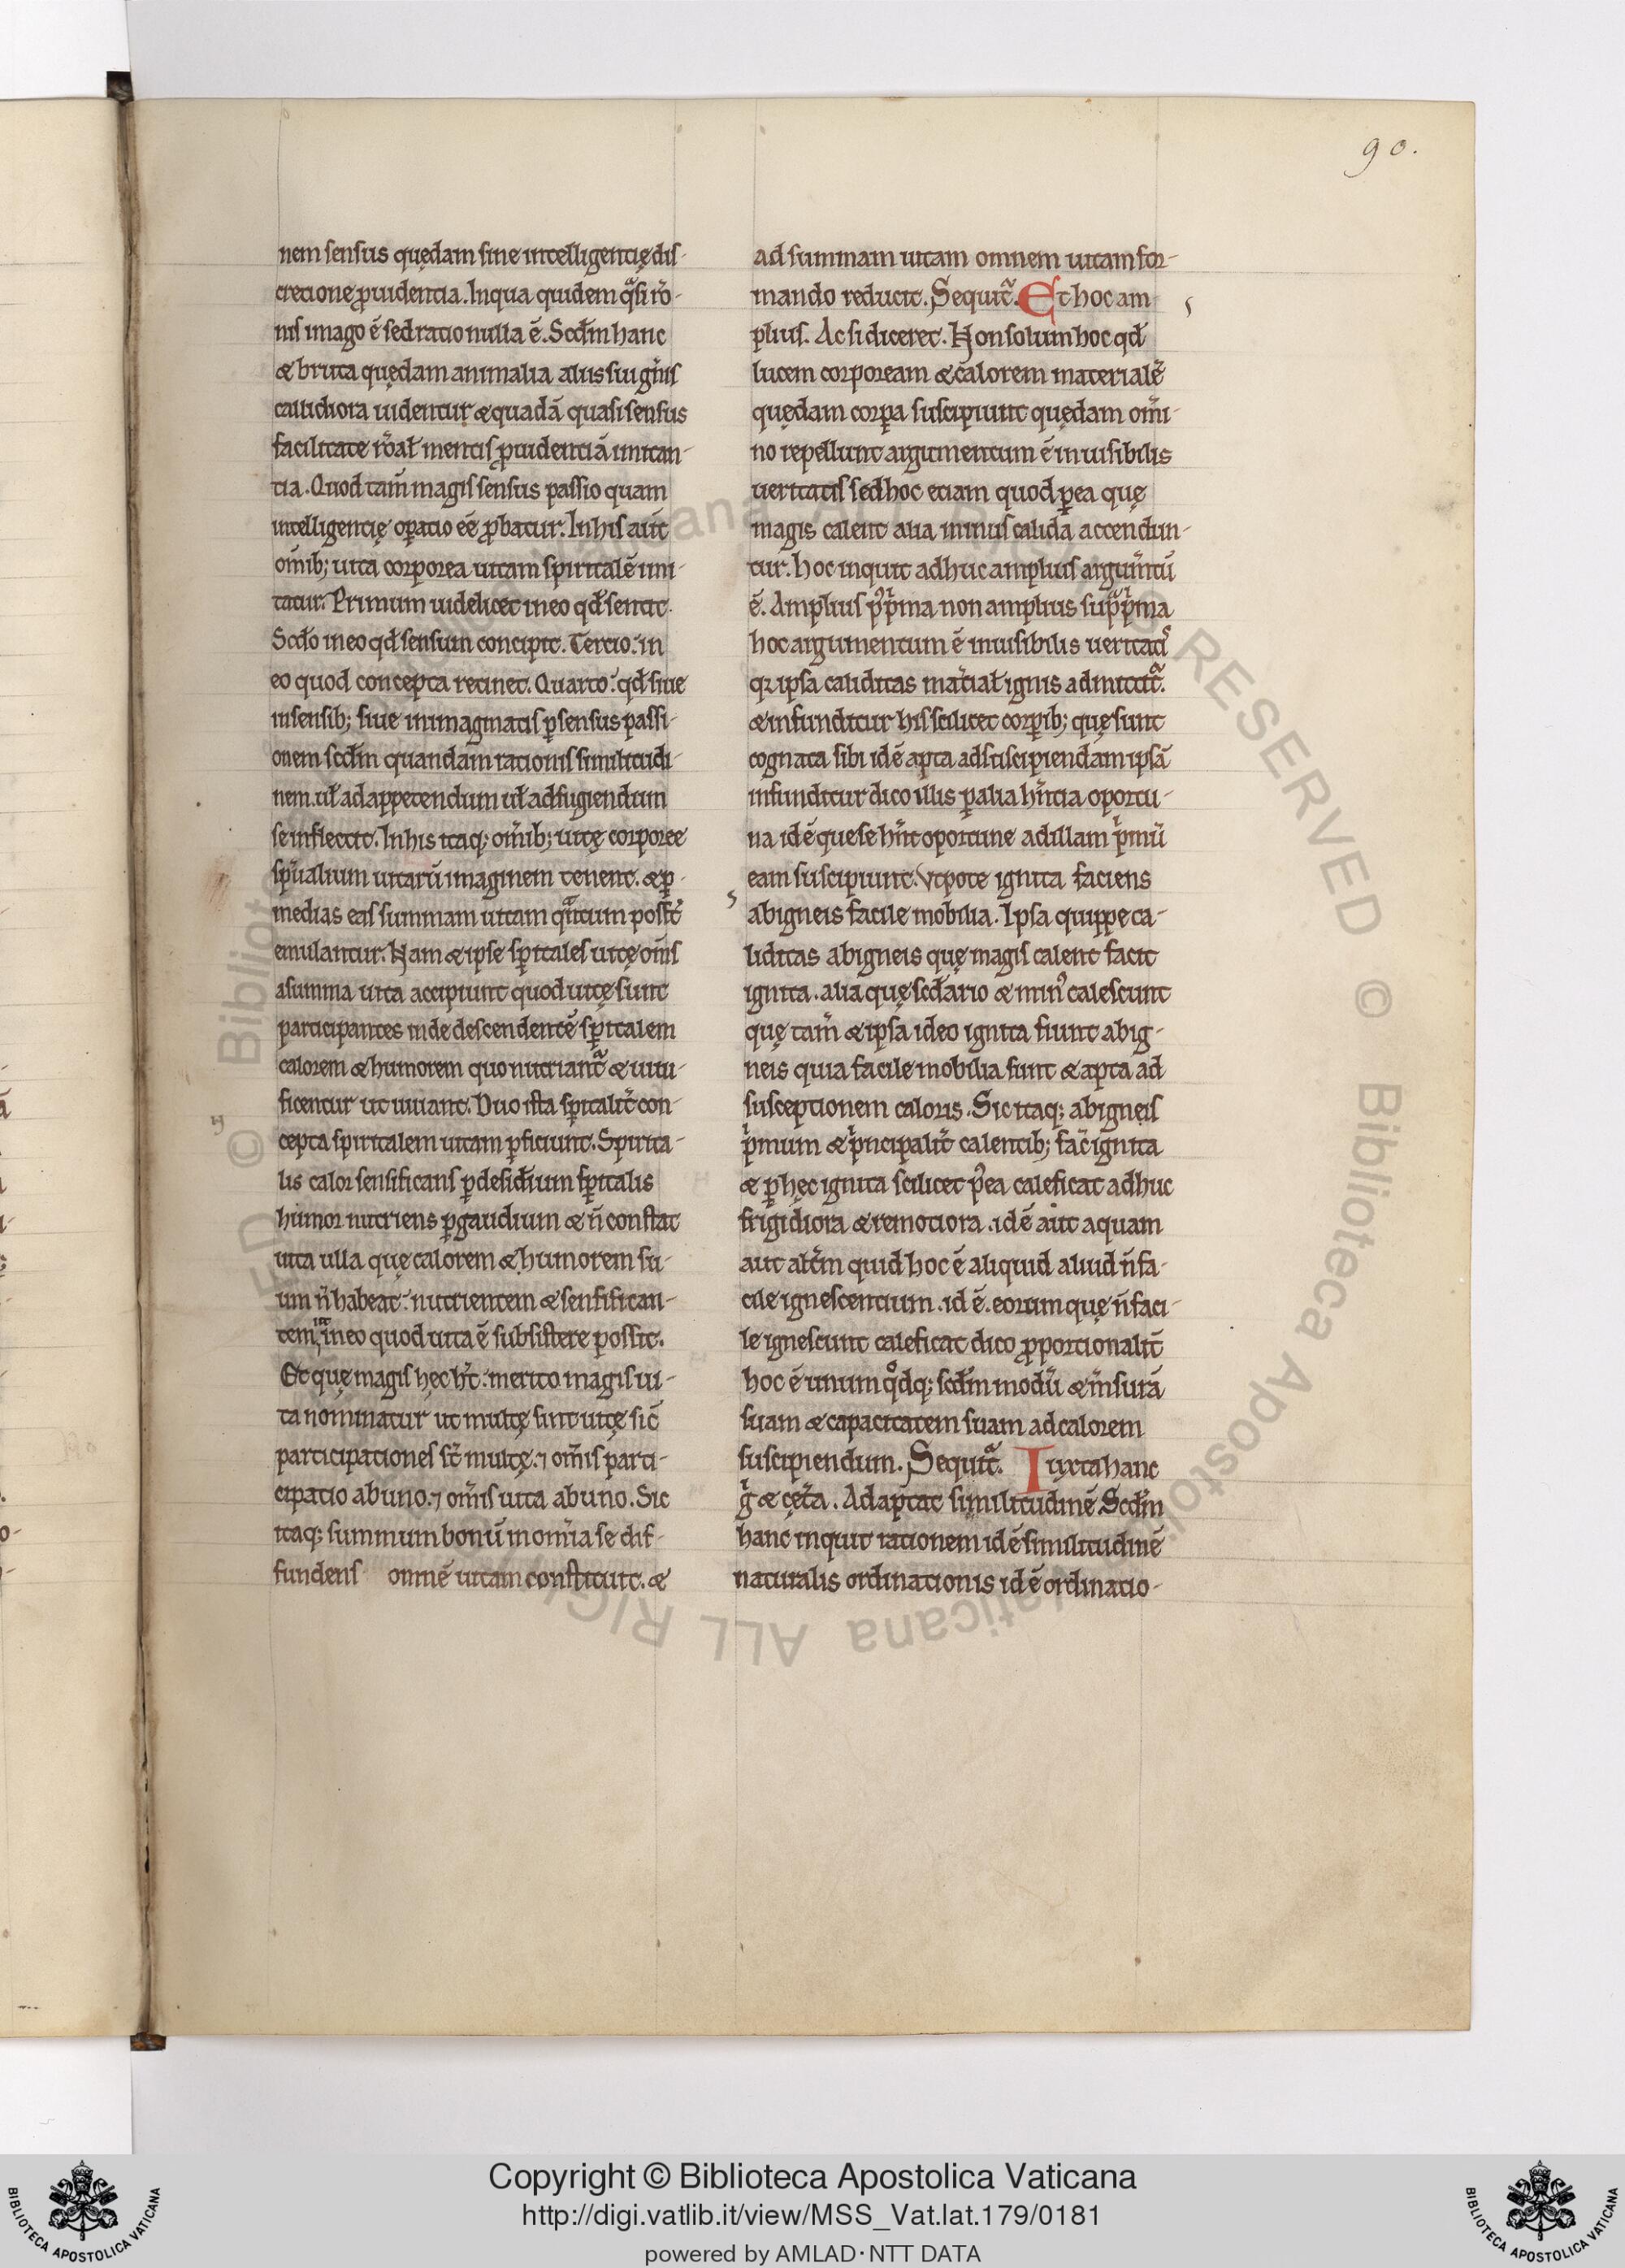 90.
nem sensus quędam sine intelligentię dis-
cretione ꝓuidentia. In qua quidem qͣsi rō-
nis imago ē sed ratio nulla ē. Scďm hanc
& bruta quędam animalia aliis sui gn̄is
callidiora uidentur & quadā quasi sensus
facilitate rōał mentis ꝓuidentiā imitan-
tia. Quod tam̄ magis sensus passio quam
intelligentię oꝑatio eē ꝓbatur. In his aūt
om̄ib; uita corporea uitam spiritalē imi-
tatur. Primum uidelicet in eo qđ sentit.
Scđo in eo qđ sensum concipit. Tercio. in
eo quod concepta retinet. Quarto. qđ siue
in sensib; siue in imaginatis ꝑ sensus passi-
onem scđm quandam rationis similitudi-
nem. uł ad appetendum uł ad fugiendum
se inflectit. In his itaq; om̄ib; uitę corporee
sp̄ualium uitarū imaginem tenent. & ꝑ
medias eas summam uitam qͣntum possт̄
emulantur. Nam & ipse sp̄itales uitę om̄s
a summa uita accipiunt quod uitę sunt
participantes inde descendentē sp̄italem
calorem & humorem quo nutriantͣ & uiui-
ficentur ut uiuant. Duo ista sp̄italit̄ con-
cepta spiritalem uitam ꝑficiunt. Spirita-
lis calor sensificans ꝑ desiđium sp̄italis
humor nutriens ꝑ gaudium & n̄ constat
uita ulla quę calorem & humorem su-
um n̄ habeat. nutrientem & sensifican-
tem, ut in eo quod uita ē subsistere possit.
Et quę magis hęc ht̄. merito magis ui-
ta nominatur ut multę sint uitę sic̄
participationes st̄ multę. ⁊ om̄is parti-
cipatio ab uno. ⁊ om̄is uita ab uno. Sic
itaq; summum bonū in om̄ia se dif-
fundens omnē uitam constituit. &
ad summam uitam omnem uitam for-
mando reducit. Sequitͣ. Et hoc am
plius. Ac si diceret. Non solum hoc qđ
lucem corpoream & calorem materialē
quędam corꝑa suscipiunt quędam om̄i-
no repellunt argumentum ē inuisibilis
ueritatis sed hoc etiam quod ꝑ ea quę
magis calent alia minus calida accendun-
tur. hoc inquit adhuc amplius argum̄tū
ē. Amplius p᷒ pͥma non amplius suꝑ pͥma
hoc argumentum ē inuisibilis ueritatᷤ
qꝛ ipsa caliditas mat̄iał ignis admittitͣ.
& infunditur his scilicet corꝑib; quę sunt
cognata sibi id ē apta ad suscipiendam ipsā
infunditur dico illis ꝑ alia hn̄tia oportu-
na id ē que se hn̄t oportune ad illam pͥmū
eam suscipiunt. Vtpote ignita faciens
ab igneis facile mobilia. Ipsa quippe ca-
liditas ab igneis quę magis calent facit
ignita. alia quę scđario & min᷒ calescunt
quę tam̄ & ipsa ideo ignita fiunt ab ig-
neis quia facile mobilia sunt & apta ad
susceptionem caloris. Sic itaq; ab igneis
pͥmum & pͥncipalit̄ calentib; fac̄ ignita
& ꝑ hęc ignita scilicet p᷒ ea caleficat adhuc
frigidiora & remotiora. id ē aut aquam
aut alt̄m quid hoc ē aliquid aliud n̄ fa-
cile ignescentium. id ē. eorum quę n̄ faci-
le ignescunt caleficat dico ꝓportionalit̄
hoc ē unum qͦdq; scđm modū & m̄surā
suam & capacitatem suam ad calorem
suscipiendum. Sequitͣ. Iuxta hanc
gͥ & cęt̄a. Adaptat similitudinē. Scđm
hanc inquit rationem id ē similitudinē
naturalis ordinationis id ē ordinatio-
Copyright © Biblioteca Apostolica Vaticana
http://digi.vatlib.it/view/MSS_Vat.lat.179/0181
powered by AMLAD·NTT DATA
BIBLIOTECA APOSTOLICA VATICANA
BIBLIOTECA APOSTOLICA VATICANA
© Biblioteca Apostolica Vaticana ALL RIGHTS RESERVED